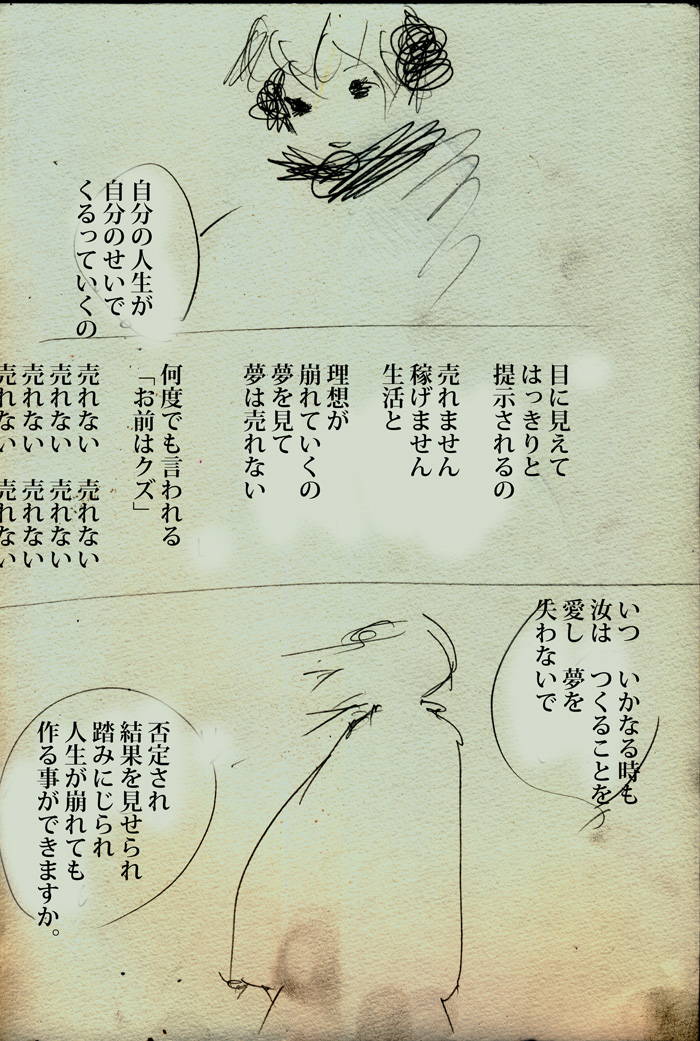 自分の人生が
自分のせいで
くるっていくの
目に見えて
はっきりと
提示されるの
売れません
稼げません
生活と
理想が
崩れていくの
夢を見て
夢は売れない
何度でも言われる
「お前はクズ」
売れない　売れない
売れない　売れない
売れない　売れない
売れない　売れない
いつ　いかなる時も
汝は　つくることを
愛し　夢を
失わないで
否定され
結果を見せられ
踏みにじられ
人生が崩れても
作る事ができますか。